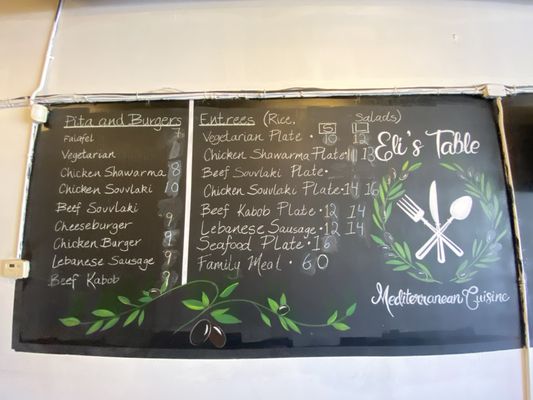 Pita and Burgers
Falafel 7
Vegetarian
Chicken Shawarma 8
Chicken Souvlaki 10
Beef Souvlaki
Cheeseburger 9
Chicken Burger 9
Lebanese Sausage 9
Beef Kabob
Entrees (Rice, Salads)
S L
Vegetarian Plate • 10 12
Chicken Shawarma Plate 11 13
Beef Souvlaki Plate •
Chicken Souvlaki Plate • 14 16
Beef Kabob Plate • 12 14
Lebanese Sausage • 12 14
Seafood Plate • 16
Family Meal • 60
Eli's Table
Mediterranean Cuisine